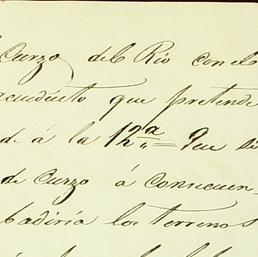 Curzo del Rio con el
acueducto que pretende
de á la 12.a= Que si
de Curzo á consecuen-
badiria los terrenos